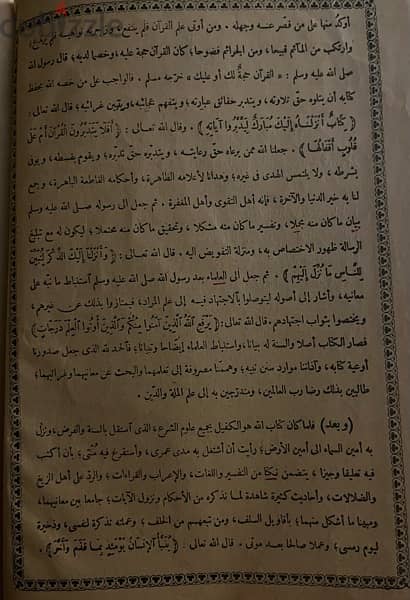 أوكد منها على من قصّر عنه وجهله . ومن أوتى علم القرآن فلم ينتفع، وزجرته نواهيه فلم يرتدع،
وارتكب من المآثم قبيحا، ومن الجرائم فضوحا؛ كان القرآن حجة عليه، وخصما لديه؛ قال رسول الله
صلى الله عليه وسلم : « القرآن حجةٌ لك أو عليك » خرّجه مسلم . فالواجب على من خصه الله بحفظ
كتابه أن يتلوه حق تلاوته، ويتدبر حقائق عبارته؛ ويتفهم عجائبه، ويتبين غرائبه؛ قال الله تعالى :
﴿ كِتَابٌ أَنْزَلْنَاهُ إِلَيْكَ مُبَارَكٌ لِيَدَّبَّرُوا آيَاتِهِ ﴾ . وقال الله تعالى : ﴿ أَفَلَا يَتَدَبَّرُونَ الْقُرْآنَ أَمْ عَلَى
قُلُوبٍ أَقْفَالُهَا ﴾ . جعلنا الله ممن يرعاه حق رعايته ، ويتدبّره حق تدبّره؛ ويقوم بقسطه، ويوفى
بشرطه ، ولا يلتمس الهدى فى غيره؛ وهدانا لأعلامه الظاهرة، وأحكامه القاطعة الباهرة، وجمع
لنا به خير الدنيا والآخرة، فإنه أهل التقوى وأهل المغفرة . ثم جعل الى رسوله صلى الله عليه وسلم
بيان ما كان منه مجملا، وتفسير ما كان منه مشكلا ، وتحقيق ما كان منه محتملا؛ ليكون له مع تبليغ
الرسالة ظهور الاختصاص به، ومنزلة التفويض اليه . قال الله تعالى : ﴿ وَأَنْزَلْنَا إِلَيْكَ الذِّكْرَ لِتُبَيِّنَ
لِلنَّاسِ مَا نُزِّلَ إِلَيْهِمْ ﴾ . ثم جعل الى العلماء بعد رسول الله صلى الله عليه وسلم استنباط ما نبّه على
معانيه، وأشار إلى أصوله ليتوصلوا بالاجتهاد فيه إلى علم المراد، فيمتازوا بذلك عن غيرهم ،
ويختصوا بثواب اجتهادهم . قال الله تعالى : ﴿ يَرْفَعِ اللهُ الَّذِينَ آمَنُوا مِنْكُمْ وَالَّذِينَ أُوتُوا الْعِلْمَ دَرَجَاتٍ ﴾
فصار الكتاب أصلا والسنة له بيانا، واستنباط العلماء إيضاحا وتبيانا؛ فالحمد لله الذى جعل صدورنا
أوعية كتابه، وآذاننا موارد سنن نبيه؛ وهممنا مصروفة إلى تعلمهما والبحث عن معانيهما وغرائبهما؛
طالبين بذلك رضا رب العالمين، ومتدرّجين به إلى علم الملة والدّين .
( وبعد ) فلما كان كتاب الله هو الكفيل بجميع علوم الشرع، الذى استقل بالسنة والفرض، ونزل
به أمين السماء الى أمين الأرض؛ رأيت أن أشتغل به مدى عمرى، وأستفرغ فيه مُنّتى؛ بأن أكتب
فيه تعليقا وجيزا، يتضمن نُكتا من التفسير واللغات، والإعراب والقراءات؛ والردّ على أهل الزيغ
والضلالات، وأحاديث كثيرة شاهدة لما نذكره من الأحكام ونزول الآيات؛ جامعا بين معانيهما،
ومبينا ما أشكل منهما؛ بأقاويل السلف، ومن تبعهم من الخلف . وعملته تذكرة لنفسى، وذخيرة
ليوم رمسى؛ وعملا صالحا بعد موتى . قال الله تعالى : ﴿ يُنَبَّأُ الْإِنْسَانُ يَوْمَئِذٍ بِمَا قَدَّمَ وَأَخَّرَ ﴾ .